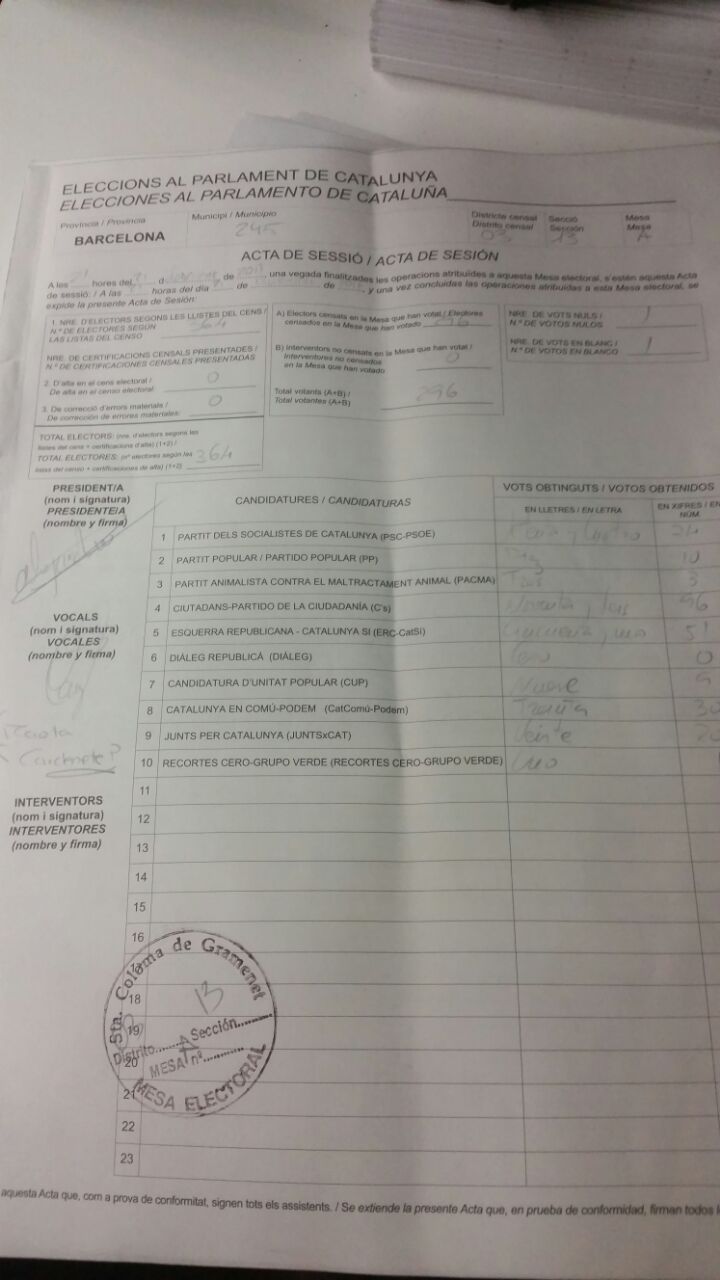 ELECCIONS AL PARLAMENT DE CATALUNYA
ELECCIONES AL PARLAMENTO DE CATALUÑA
Província / Provincia
BARCELONA
Municipi / Municipio
245
Districte censal
Distrito censal
03
Secció
Sección
13
Mesa
Mesa
A
ACTA DE SESSIÓ / ACTA DE SESIÓN
A les 21 hores del 21 d de , una vegada finalitzades les operacions atribuïdes a aquesta Mesa electoral, s'estén aquesta Acta
de sessió: / A las horas del día de de , y una vez concluidas las operaciones atribuidas a esta Mesa electoral, se
expide la presente Acta de Sesión:
1. NRE. D'ELECTORS SEGONS LES LLISTES DEL CENS /
N.º DE ELECTORES SEGÚN
LAS LISTAS DEL CENSO 364
NRE. DE CERTIFICACIONS CENSALS PRESENTADES /
N.º DE CERTIFICACIONES CENSALES PRESENTADAS
2. D'alta en el cens electoral /
De alta en el censo electoral 0
3. De correcció d'errors materials /
De corrección de errores materiales: 0
TOTAL ELECTORS: (nre. d'electors segons les
llistes del cens + certificacions d'alta) (1+2) /
TOTAL ELECTORES: (nº electores según las
listas del censo + certificaciones de alta) (1+2) 364
A) Electors censats en la Mesa que han votat / Electores
censados en la Mesa que han votado 296
B) Interventors no censats en la Mesa que han votat /
Interventores no censados
en la Mesa que han votado 0
Total votants (A+B) /
Total votantes (A+B) 296
NRE. DE VOTS NULS /
N.º DE VOTOS NULOS 1
NRE. DE VOTS EN BLANC /
N.º DE VOTOS EN BLANCO 1
PRESIDENT/A
(nom i signatura)
PRESIDENTE/A
(nombre y firma)
VOCALS
(nom i signatura)
VOCALES
(nombre y firma)
INTERVENTORS
(nom i signatura)
INTERVENTORES
(nombre y firma)
CANDIDATURES / CANDIDATURAS
VOTS OBTINGUTS / VOTOS OBTENIDOS
EN LLETRES / EN LETRA
EN XIFRES / EN
NÚM.
1 PARTIT DELS SOCIALISTES DE CATALUNYA (PSC-PSOE)
2 PARTIT POPULAR / PARTIDO POPULAR (PP) 10
3 PARTIT ANIMALISTA CONTRA EL MALTRACTAMENT ANIMAL (PACMA) Tres 3
4 CIUTADANS-PARTIDO DE LA CIUDADANÍA (C's) 96
5 ESQUERRA REPUBLICANA - CATALUNYA SÍ (ERC-CatSí) 51
6 DIÀLEG REPUBLICÀ (DIÀLEG) 0
7 CANDIDATURA D'UNITAT POPULAR (CUP) Nueve 9
8 CATALUNYA EN COMÚ-PODEM (CatComú-Podem) Treinta 30
9 JUNTS PER CATALUNYA (JUNTSxCAT) Veinte 20
10 RECORTES CERO-GRUPO VERDE (RECORTES CERO-GRUPO VERDE) Uno
11
12
13
14
15
16
18
19
20
21
22
23
Sta. Coloma de Gramenet
13
Distrito A Sección
MESA nº
MESA ELECTORAL
aquesta Acta que, com a prova de conformitat, signen tots els assistents. / Se extiende la presente Acta que, en prueba de conformidad, firman todos